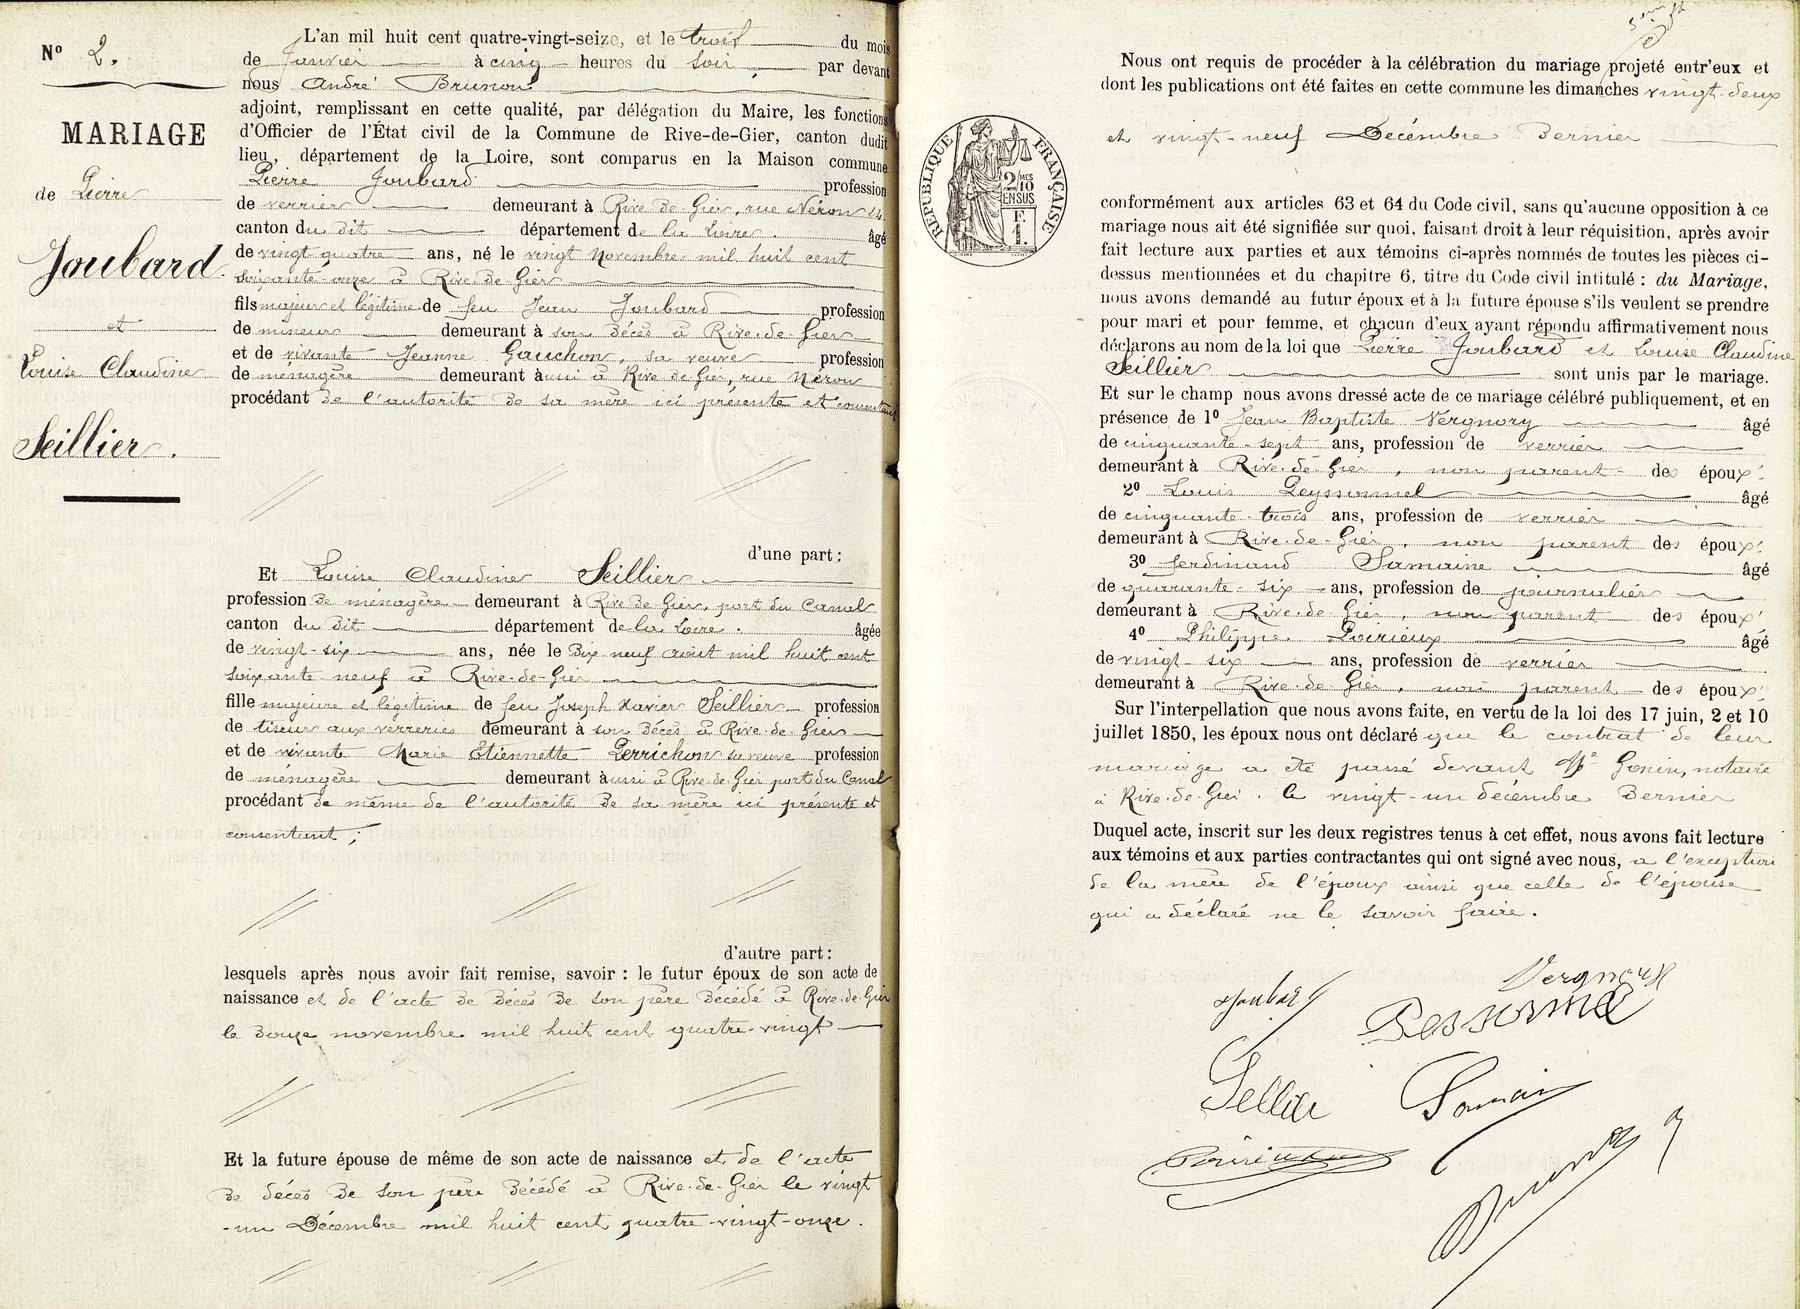 N° 2.
MARIAGE
de Pierre
Joubard
et
Louise Claudine
Seillier.
L'an mil huit cent quatre-vingt-seize, et le trois du mois
de Janvier à cinq heures du soir par devant
nous André Brunon
adjoint, remplissant en cette qualité, par délégation du Maire, les fonctions
d'Officier de l'État civil de la Commune de Rive-de-Gier, canton dudit
lieu, département de la Loire, sont comparus en la Maison commune
Pierre Joubard profession
de verrier demeurant à Rive-de-Gier, rue Néron 24
canton du dit département de la Loire. âgé
de vingt-quatre ans, né le vingt Novembre mil huit cent
soixante-onze à Rive-de-Gier
fils majeur et légitime de feu Jean Joubard profession
de mineur demeurant à son décès à Rive-de-Gier
et de vivante Jeanne Gauchon, sa veuve profession
de ménagère demeurant à aussi à Rive de Gier, rue Néron
procédant de l'autorité de sa mère ici présente et consentant
d'une part :
Et Louise Claudine Seillier
profession de ménagère demeurant à Rive de Gier, port du Canal
canton du dit département de la Loire. âgée
de vingt-six ans, née le dix neuf août mil huit cent
soixante-neuf à Rive-de-Gier
fille majeure et légitime de feu Joseph Xavier Seillier profession
de tiseur aux verreries demeurant à son décès à Rive-de-Gier
et de vivante Marie Etiennette Perrichon sa veuve profession
de ménagère demeurant à aussi à Rive de Gier port du Canal
procédant de même de l'autorité de sa mère ici présente et
consentant ;
d'autre part :
lesquels après nous avoir fait remise, savoir : le futur époux de son acte de
naissance et de l'acte de décès de son père décédé à Rive-de-Gier
le douze novembre mil huit cent quatre-vingt
Et la future épouse de même de son acte de naissance et de l'acte
de décès de son père décédé à Rive-de-Gier le vingt
-un Décembre mil huit cent quatre-vingt-onze.
Nous ont requis de procéder à la célébration du mariage projeté entr'eux et
dont les publications ont été faites en cette commune les dimanches vingt-deux
et vingt-neuf Décembre dernier
RÉPUBLIQUE FRANÇAISE
2/10
MES
EN SUS
F.
1.
conformément aux articles 63 et 64 du Code civil, sans qu'aucune opposition à ce
mariage nous ait été signifiée sur quoi, faisant droit à leur réquisition, après avoir
fait lecture aux parties et aux témoins ci-après nommés de toutes les pièces ci-
dessus mentionnées et du chapitre 6, titre du Code civil intitulé : du Mariage,
nous avons demandé au futur époux et à la future épouse s'ils veulent se prendre
pour mari et pour femme, et chacun d'eux ayant répondu affirmativement nous
déclarons au nom de la loi que Pierre Joubard et Louise Claudine
Seillier sont unis par le mariage.
Et sur le champ nous avons dressé acte de ce mariage célébré publiquement, et en
présence de 1° Jean Baptiste Vergnory âgé
de cinquante-sept ans, profession de verrier
demeurant à Rive-de-Gier, non parent des époux.
2° Louis Peyssonnel âgé
de cinquante-trois ans, profession de verrier
demeurant à Rive-de-Gier, non parent des époux.
3° Ferdinand Samaine âgé
de quarante-six ans, profession de journalier
demeurant à Rive-de-Gier, non parent des époux
4° Philippe Poirieux âgé
de vingt-six ans, profession de verrier
demeurant à Rive-de-Gier, non parent des époux
Sur l'interpellation que nous avons faite, en vertu de la loi des 17 juin, 2 et 10
juillet 1850, les époux nous ont déclaré que le contrat de leur
mariage a été passé devant Me Gonin, notaire
à Rive-de-Gier. le vingt-un décembre dernier
Duquel acte, inscrit sur les deux registres tenus à cet effet, nous avons fait lecture
aux témoins et aux parties contractantes qui ont signé avec nous, à l'exception
de la mère de l'époux ainsi que celle de l'épouse
qui a déclaré ne le savoir faire.
Joubard
Vergnory
Pessonnel
Sellier
Samain
Poirieux
Brunon